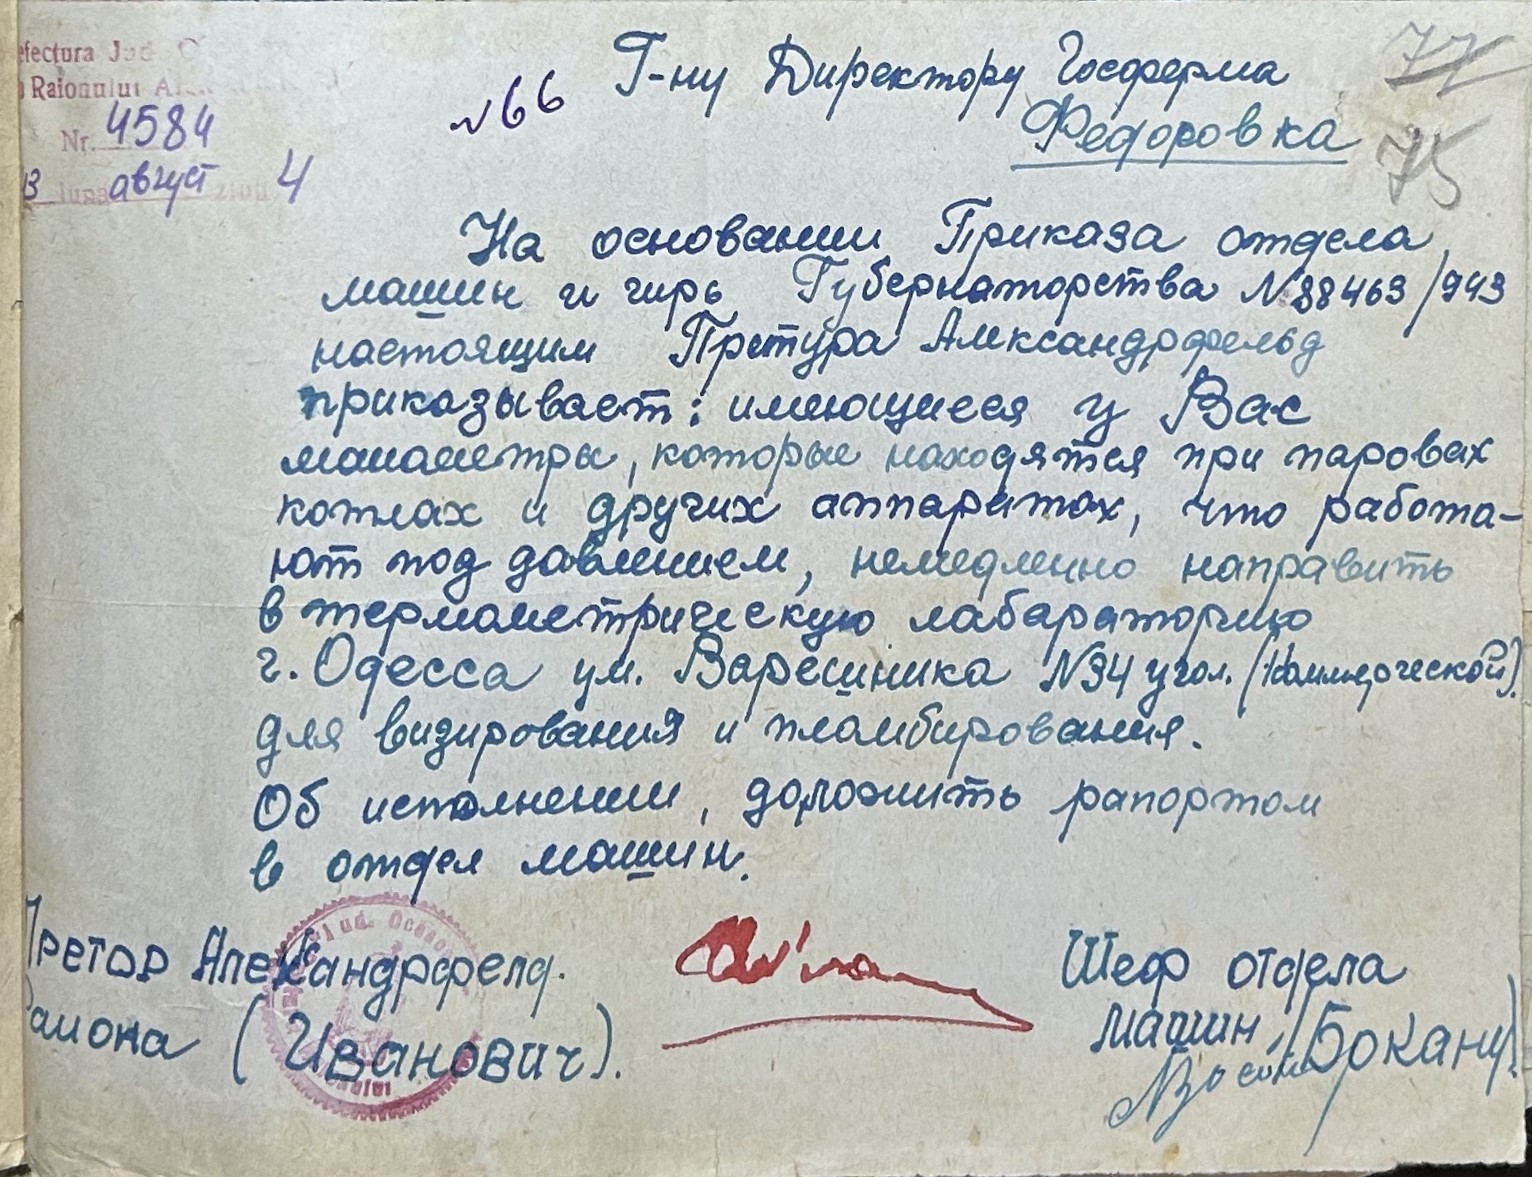 efectura Jud. O
Raionului A
Nr. 4584
13 luna август 4
№66
77
75
Г-ну Директору Госферма
Федоровка
На основании Приказа отдела
машин и гирь Губернаторства №88463/943
настоящим Претура Александрфельд
приказывает: имеющиеся у Вас
манометры, которые находятся при паровах
котлах и других аппаратах, что работа-
ют под давлением, немедленно направить
в термометрическую лабараторию
г. Одесса ул. Варешника №34 угол. (Коммерческой).
для визирования и пломбирования.
Об исполнении, доложить рапортом
в отдел машин.
Претор Александрфелд.
Района (Иванович).
Jud. Oceacov
Шеф отдела
машин, (Брокану).